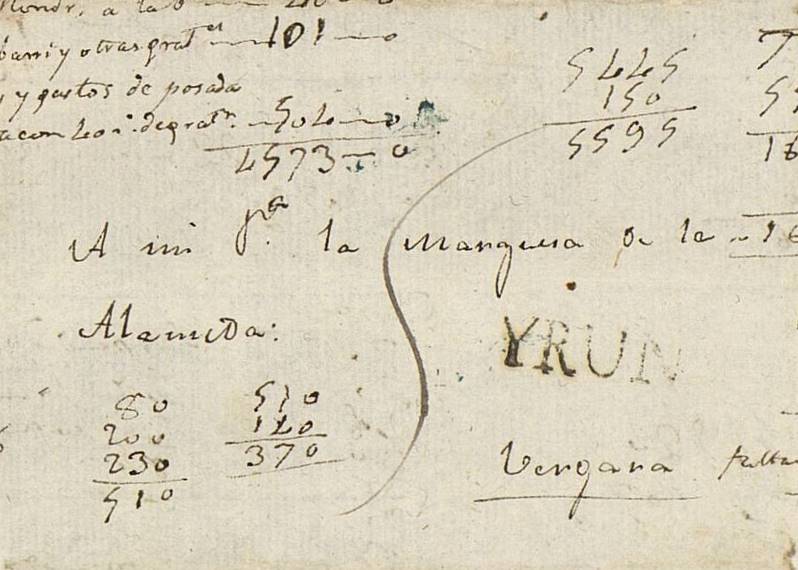 a la
barri y otras grat.es — 101 — 0
y gastos de posada
de grat.n — 504 — 0
4573 — 0
5445
150
5595
A mi
la Marquesa de la
Alameda:
YRUN
80
200
230
510
510
140
370
Vergara